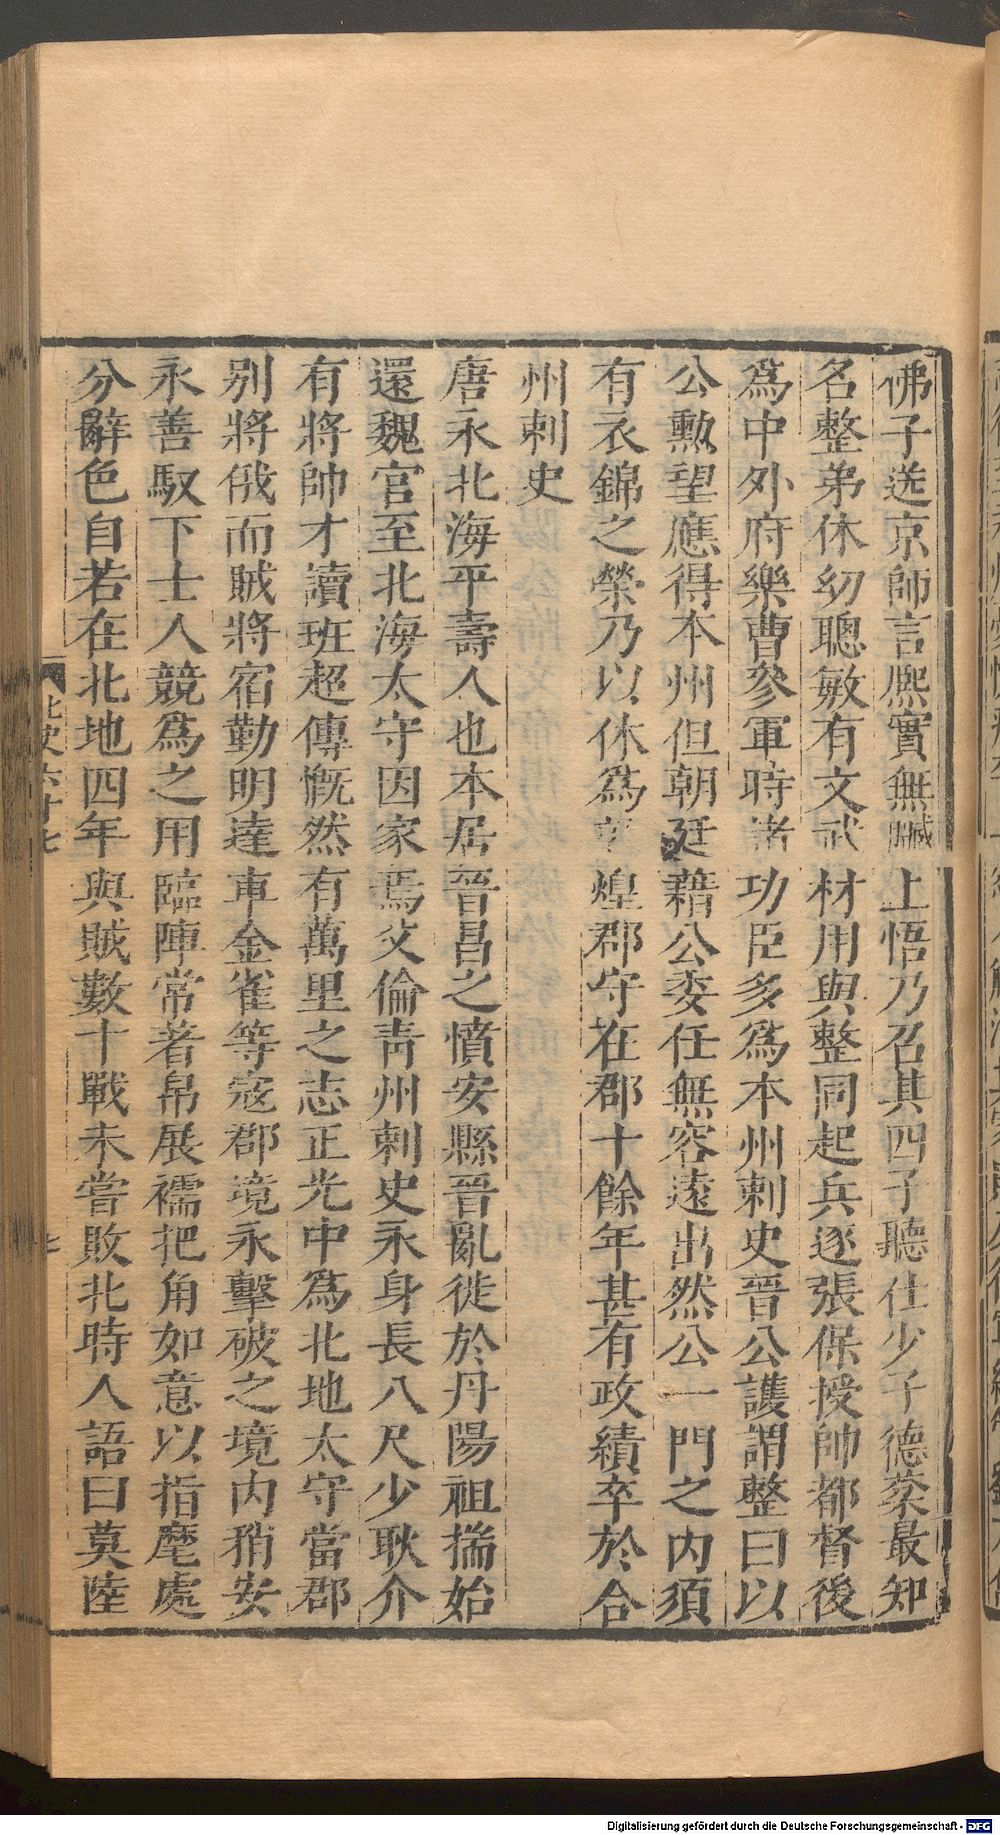 佛子送京師言熙實無贓上悟乃召其四子聽仕少子德棻最知
名整弟休幼聰敏有文武材用與整同起兵逐張保授帥都督後
為中外府樂曹參軍時諸功臣多為本州刺史晉公護謂整曰以
公勲望應得本州但朝廷藉公委任無容遠出然公一門之内須
有衣錦之榮乃以休為燉煌郡守在郡十餘年甚有政績卒於合
州刺史
唐永北海平壽人也本居晉昌之憤安縣晉亂徙於丹陽祖揣始
還魏官至北海太守因家焉父倫青州刺史永身長八尺少耿介
有將帥才讀班超傳慨然有萬里之志正光中為北地太守當郡
别將俄而賊將宿勤明達車金雀等寇郡境永擊破之境内稍安
永善馭下士人競為之用臨陣常著帛展襦把角如意以指麾處
分辭色自若在北地四年與賊數十戰未嘗敗北時人語曰莫陸
北史六十七
七
Digitalisierung gefördert durch die Deutsche Forschungsgemeinschaft - DFG